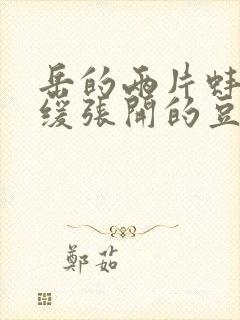 岳的兩片蚌
缓張開的豆
鄭茹